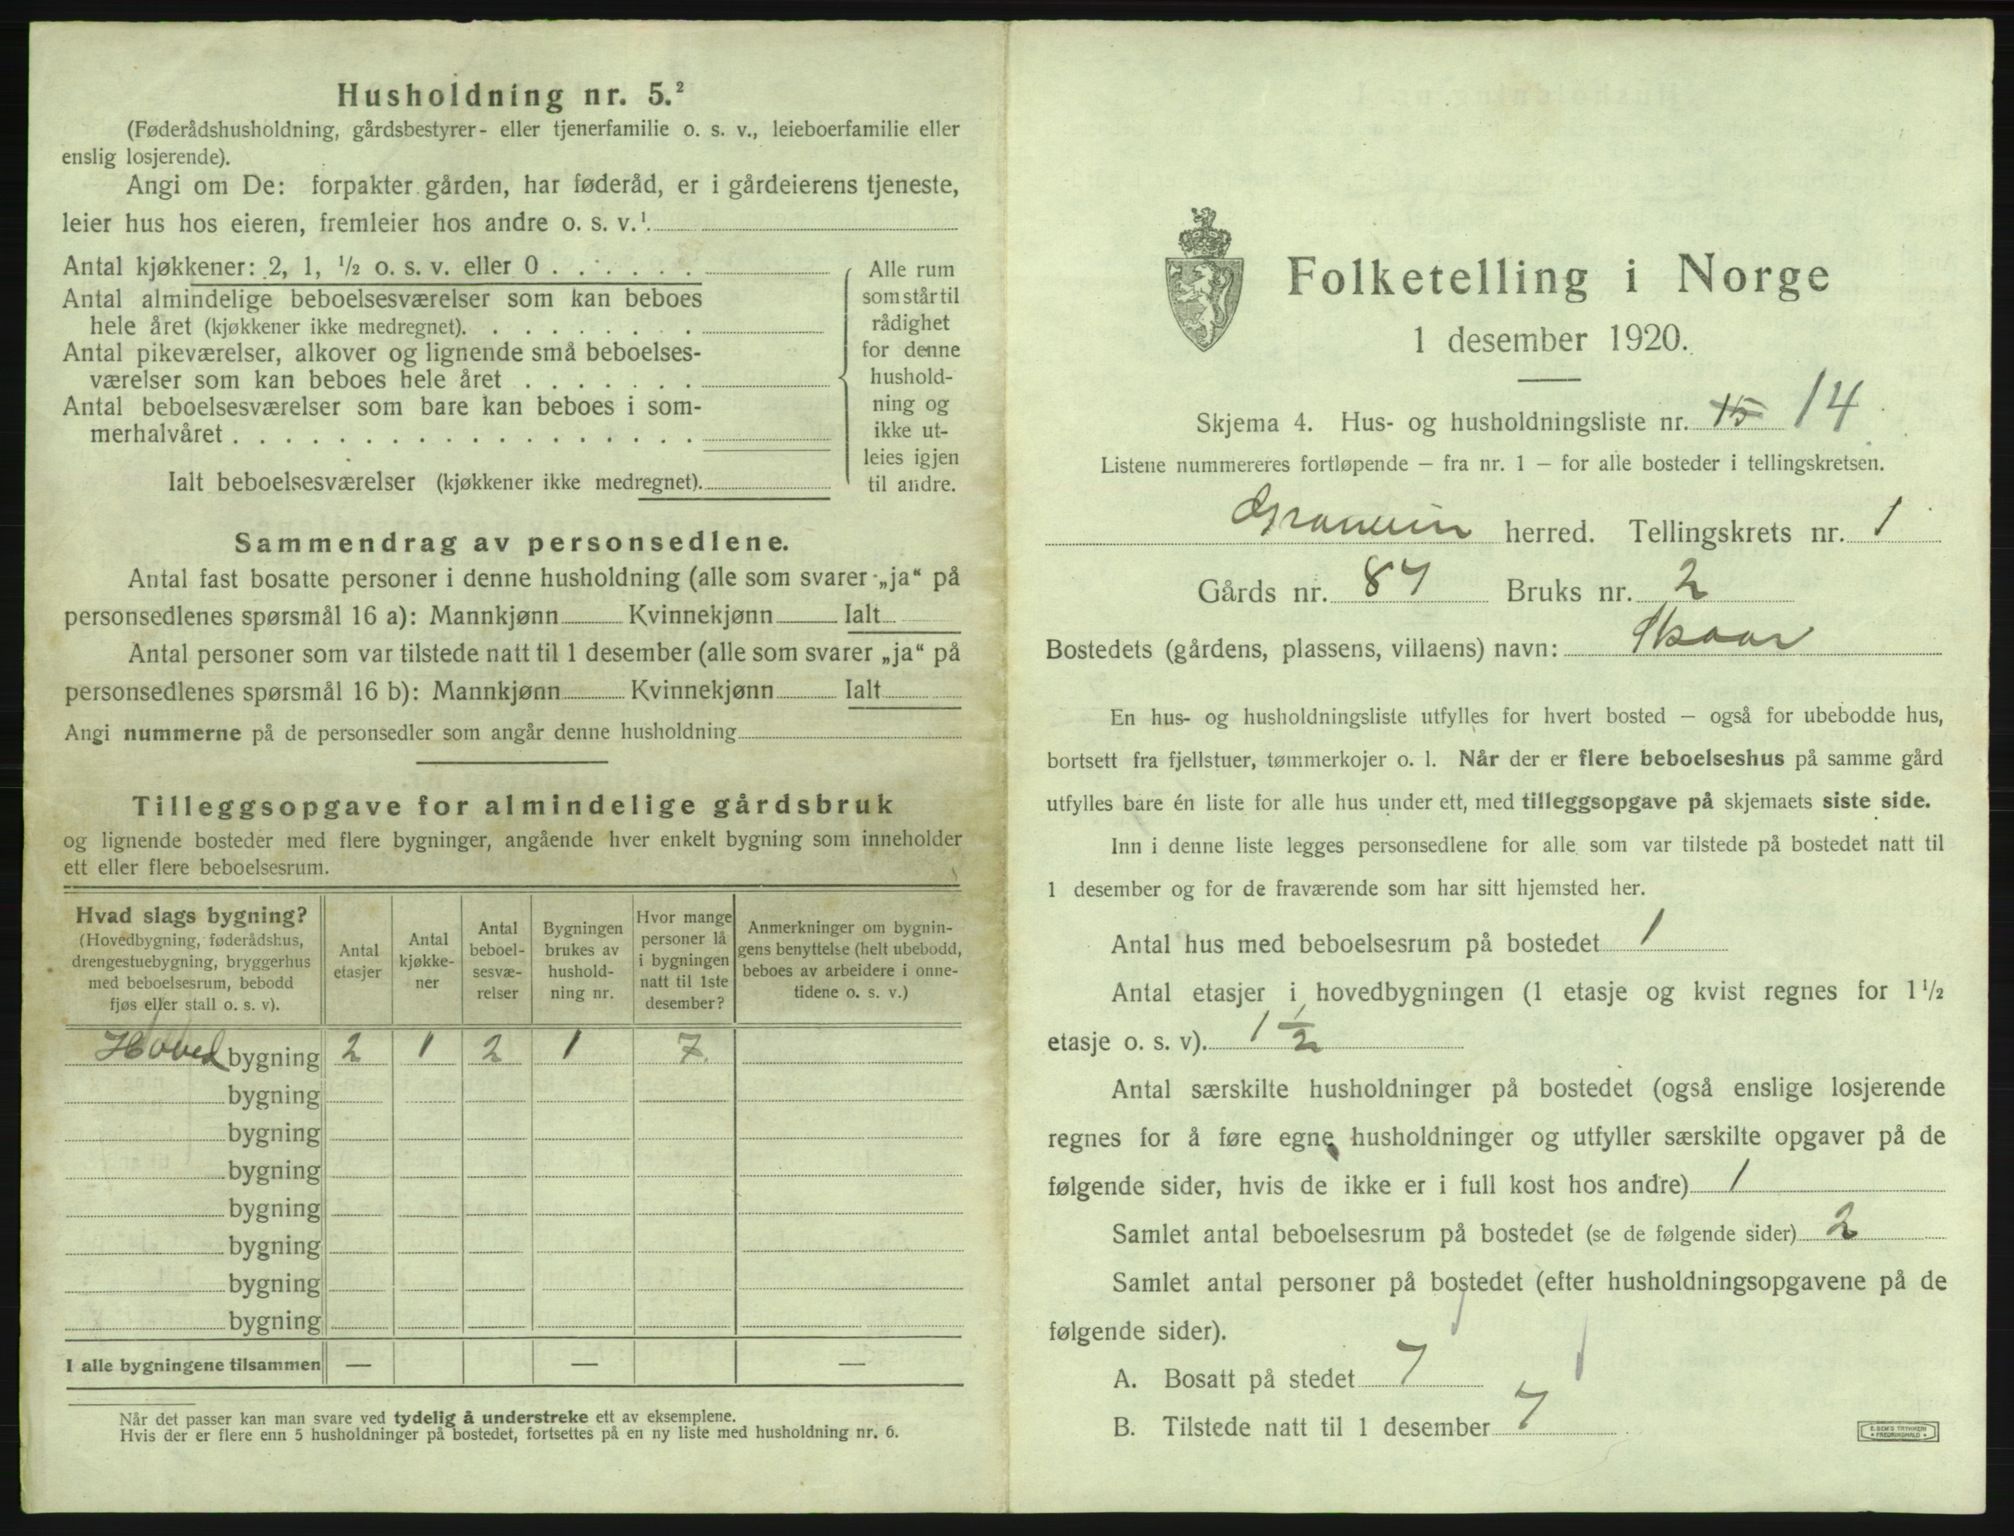 Husholdning nr. 5.²
(Føderådshusholdning, gårdsbestyrer- eller tjenerfamilie o. s. v., leieboerfamilie eller
enslig losjerende).
Angi om De: forpakter gården, har føderåd, er i gårdeierens tjeneste,
leier hus hos eieren, fremleier hos andre o. s. v.¹
Antal kjøkkener: 2, 1, ½ o. s. v. eller 0 . . . . . .
Antal almindelige beboelsesværelser som kan beboes
hele året (kjøkkener ikke medregnet). . . . . . . . .
Antal pikeværelser, alkover og lignende små beboelses-
værelser som kan beboes hele året . . . . . . .
Antal beboelsesværelser som bare kan beboes i som-
merhalvåret . . . . . . . . . . . . . . . . . .
Ialt beboelsesværelser (kjøkkener ikke medregnet).
Alle rum
som står til
rådighet
for denne
hushold-
ning og
ikke ut-
leies igjen
til andre.
Sammendrag av personsedlene.
Antal fast bosatte personer i denne husholdning (alle som svarer „ja“ på
personsedlenes spørsmål 16 a): Mannkjønn Kvinnekjønn Ialt
Antal personer som var tilstede natt til 1 desember (alle som svarer „ja“ på
personsedlenes spørsmål 16 b): Mannkjønn Kvinnekjønn Ialt
Angi nummerne på de personsedler som angår denne husholdning
Tilleggsopgave for almindelige gårdsbruk
og lignende bosteder med flere bygninger, angående hver enkelt bygning som inneholder
ett eller flere beboelsesrum.
Hvad slags bygning?
(Hovedbygning, føderådshus,
drengestuebygning, bryggerhus
med beboelsesrum, bebodd
fjøs eller stall o. s. v).
Antal
etasjer
Antal
kjøkke-
ner
Antal
beboel-
sesvæ-
relser
Bygningen
brukes av
hushold-
ning nr.
Hvor mange
personer lå
i bygningen
natt til 1ste
desember?
Anmerkninger om bygnin-
gens benyttelse (helt ubebodd,
beboes av arbeidere i onne-
tidene o. s. v.)
Hoved bygning 2 1 2 1 7
bygning
bygning
bygning
bygning
bygning
bygning
bygning
I alle bygningene tilsammen — — —
Når det passer kan man svare ved tydelig å understreke ett av eksemplene.
Hvis der er flere enn 5 husholdninger på bostedet, fortsettes på en ny liste med husholdning nr. 6.
Folketelling i Norge
1 desember 1920.
Skjema 4. Hus- og husholdningsliste nr. 15 14
Listene nummereres fortløpende – fra nr. 1 – for alle bosteder i tellingskretsen.
Graven herred. Tellingskrets nr. 1
Gårds nr. 87 Bruks nr. 2
Bostedets (gårdens, plassens, villaens) navn: Skaar
En hus- og husholdningsliste utfylles for hvert bosted – også for ubebodde hus,
bortsett fra fjellstuer, tømmerkojer o. l. Når der er flere beboelseshus på samme gård
utfylles bare én liste for alle hus under ett, med tilleggsopgave på skjemaets siste side.
Inn i denne liste legges personsedlene for alle som var tilstede på bostedet natt til
1 desember og for de fraværende som har sitt hjemsted her.
Antal hus med beboelsesrum på bostedet 1
Antal etasjer i hovedbygningen (1 etasje og kvist regnes for 1½
etasje o. s. v). 1½
Antal særskilte husholdninger på bostedet (også enslige losjerende
regnes for å føre egne husholdninger og utfyller særskilte opgaver på de
følgende sider, hvis de ikke er i full kost hos andre) 1
Samlet antal beboelsesrum på bostedet (se de følgende sider) 2
Samlet antal personer på bostedet (efter husholdningsopgavene på de
følgende sider).
A. Bosatt på stedet 7
B. Tilstede natt til 1 desember 7
E. SEM'S TRYKKERI
FREDRIKSHALD